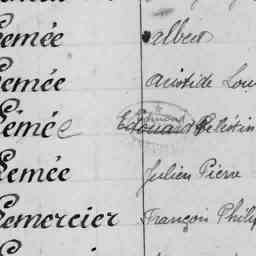 Lemée albert
Lemée aristide Lou
Lémée Edouard Célestin
Lemée Julien Pierre
Lemercier François Philip